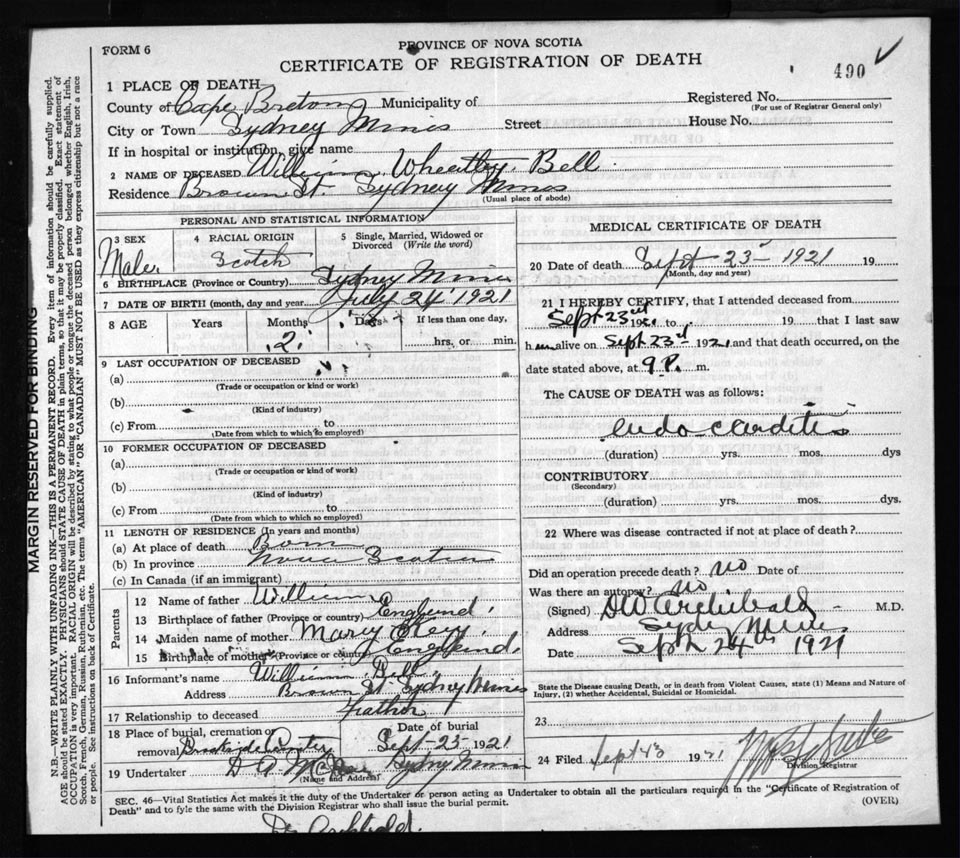 FORM 6
PROVINCE OF NOVA SCOTIA
CERTIFICATE OF REGISTRATION OF DEATH
490
1 PLACE OF DEATH
County of Cape Breton Municipality of
Registered No.
(For use of Registrar General only)
City or Town Sydney Mines Street House No.
If in hospital or institution, give name
2 NAME OF DECEASED William Wheatley Bell
Residence Brown St. Sydney Mines
(Usual place of abode)
PERSONAL AND STATISTICAL INFORMATION
3 SEX
Male
4 RACIAL ORIGIN
Scotch
5 Single, Married, Widowed or Divorced (Write the word)
6 BIRTHPLACE (Province or Country) Sydney Mines
7 DATE OF BIRTH (month, day and year) July 24 1921
8 AGE Years Months Days If less than one day,
2 hrs. or min.
9 LAST OCCUPATION OF DECEASED
(a)
(Trade or occupation or kind or work)
(b)
(Kind of industry)
(c) From to
(Date from which to which so employed)
10 FORMER OCCUPATION OF DECEASED
(a)
(Trade or occupation or kind of work)
(b)
(Kind of industry)
(c) From to
(Date from which to which so employed)
11 LENGTH OF RESIDENCE (In years and months)
(a) At place of death Born
(b) In province Nova Scotia
(c) In Canada (if an immigrant)
Parents
12 Name of father William
13 Birthplace of father (Province or country) England
14 Maiden name of mother Mary
15 Birthplace of mother (Province or country) England
16 Informant's name William Bell
Address Brown St Sydney Mines
17 Relationship to deceased Father
18 Place of burial, cremation or removal Date of burial
Sept 23 1921
19 Undertaker D A Sydney Mines
(Name and Address)
MEDICAL CERTIFICATE OF DEATH
20 Date of death Sept 23 1921 19
(Month, day and year)
21 I HEREBY CERTIFY, that I attended deceased from
Sept 23rd 192 to 19 that I last saw
h alive on Sept 23rd 1921 and that death occurred, on the
date stated above, at 9 P. m.
The CAUSE OF DEATH was as follows:
endo-carditis
(duration) yrs. mos. dys
CONTRIBUTORY
(Secondary)
(duration) yrs. mos. dys.
22 Where was disease contracted if not at place of death?
Did an operation precede death? no Date of
Was there an autopsy? no
(Signed) DW Archibald M.D.
Address Sydney Mines
Date Sept 24th 1921
State the Disease causing Death, or in death from Violent Causes, state (1) Means and Nature of Injury, (2) whether Accidental, Suicidal or Homicidal.
23
24 Filed Sept 1921
Division Registrar
SEC. 46—Vital Statistics Act makes it the duty of the Undertaker or person acting as Undertaker to obtain all the particulars required in the "Certificate of Registration of
Death" and to fyle the same with the Division Registrar who shall issue the burial permit.
(OVER)
Dr Archibald.
MARGIN RESERVED FOR BINDING
N.B.—WRITE PLAINLY WITH UNFADING INK—THIS IS A PERMANENT RECORD. Every item of information should be carefully supplied.
AGE should be stated EXACTLY. PHYSICIANS should STATE CAUSE OF DEATH in plain terms, so that it may be properly classified. Exact statement of
OCCUPATION is very important. RACIAL ORIGIN will be described by stating to what people or tongue the deceased person belonged whether English, Irish,
Scotch, French, German, Russian, Ruthenian, etc. The terms "AMERICAN" OR "CANADIAN" MUST NOT BE USED as they express citizenship but not a race
or people. See instructions on back of Certificate.